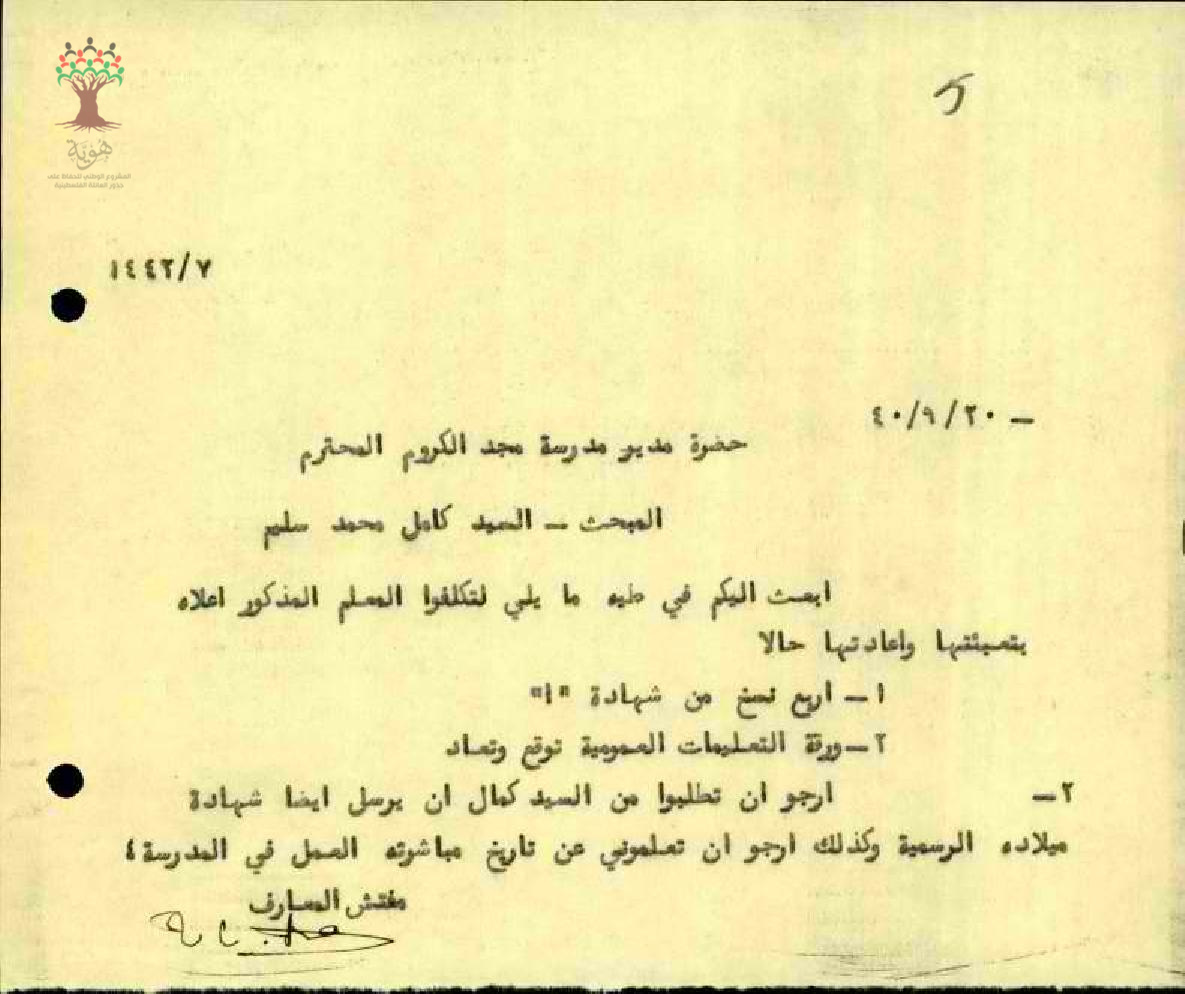 هوية
المشروع الوطني للحفاظ على
جذور العائلة الفلسطينية
١٤٤٢/٧
٤٠/٩/٢٠ –
حضرة مدير مدرسة مجد الكروم المحترم
المبحث – السيد كامل محمد سليم
ابعث اليكم في طيه ما يلي لتكلفوا المعلم المذكور اعلاه
بتعبئتها واعادتها حالا
١ – اربع نسخ من شهادة "ا"
٢ – ورقة التعليمات العمومية توقع وتعاد
٢ – ارجو ان تطلبوا من السيد كمال ان يرسل ايضا شهادة
ميلاده الرسمية وكذلك ارجو ان تعلموني عن تاريخ مباشرته العمل في المدرسة ٤
مفتش المعارف